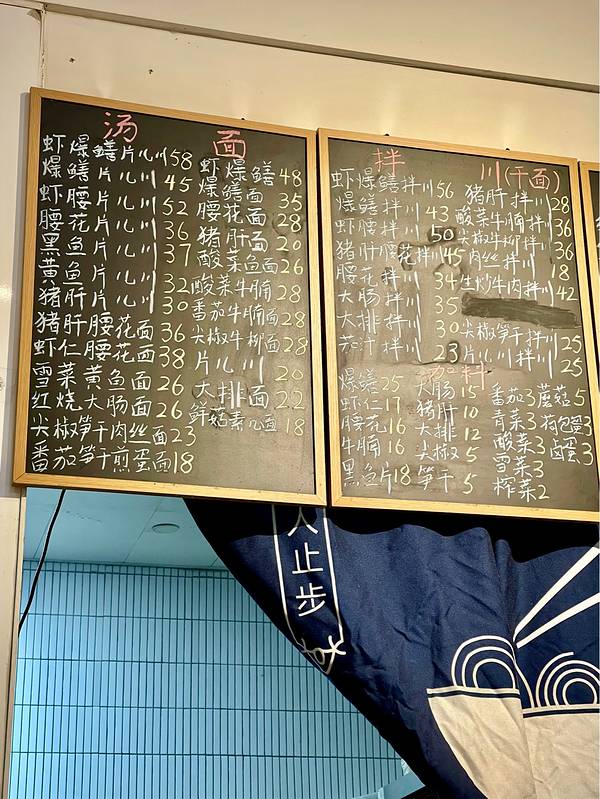 汤 面
虾爆鳝片儿川58
爆鳝片儿川45
虾腰片儿川52
腰花片儿川36
黑鱼片儿川37
黄鱼片儿川32
猪肝片儿川30
猪肝腰花面36
虾仁腰花面38
雪菜黄鱼面26
红烧大肠面26
尖椒笋干肉丝面23
番茄笋干煎蛋面18
虾爆鳝48
爆鳝面35
腰花面28
猪肝面20
酸菜鱼面26
酸菜牛腩28
番茄牛腩面28
尖椒牛柳面28
片儿川20
大排面22
鲜菇素儿面18
拌 川(干面)
虾爆鳝拌川56
爆鳝拌川43
虾腰拌川50
猪肝腰花拌川45
腰花拌川34
大肠拌川35
大排拌川30
苏汁拌川23
猪肝拌川28
酸菜牛腩拌川36
尖椒牛柳拌川36
肉丝拌川18
生炒牛肉拌川42
尖椒笋干拌川25
片儿川拌川25
加料
爆鳝25
虾仁17
腰花16
牛腩16
黑鱼片18
大肠15
猪肝10
大排12
尖椒5
笋干5
番茄3
青菜3
酸菜3
雪菜3
榨菜2
蘑菇5
荷包蛋3
卤蛋3
人止步